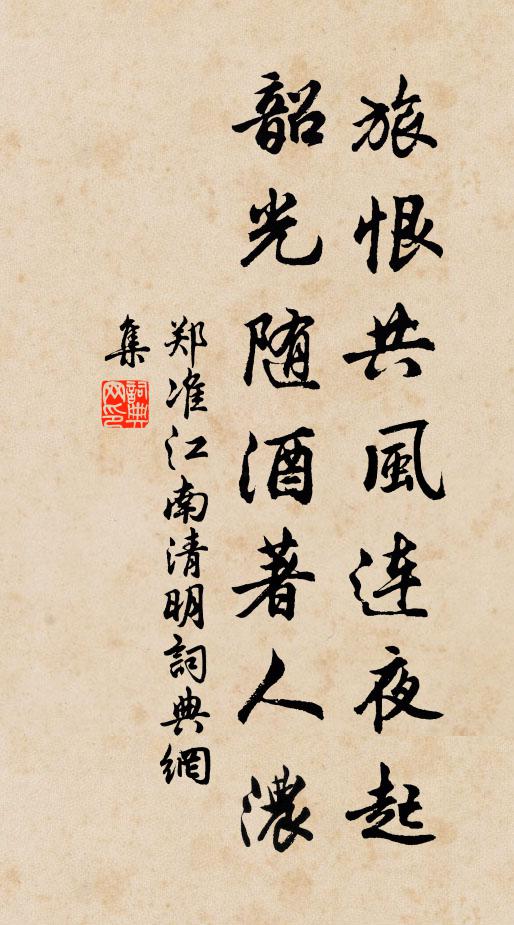 旅恨共風连夜起
韶光随酒著人濃
郑准江南清明詞典網
集
詞典网印